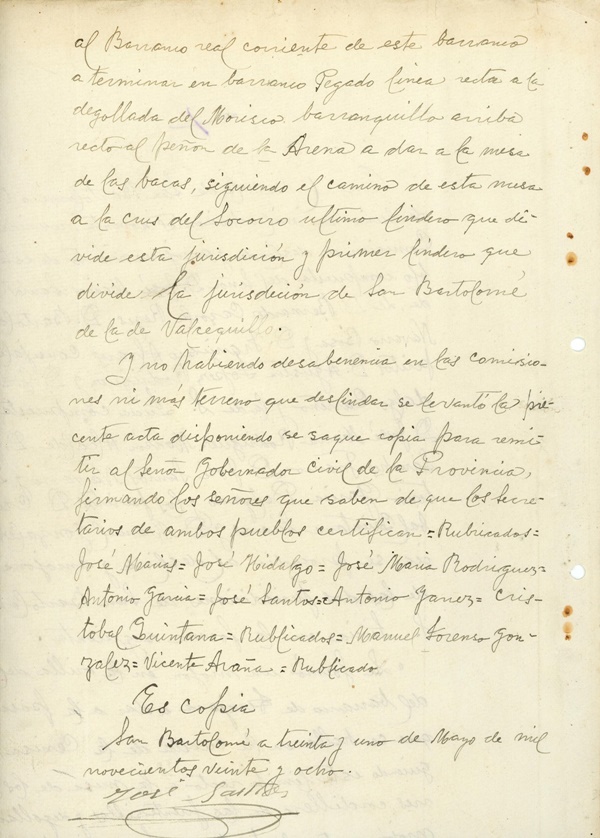 al Barranco real corriente de este barranco
a terminar en barranco Pegado linea recta a la
degollada del Morisco barranquillo arriba
recto al peñon de la Arena a dar a la mesa
de las bacas, siguiendo el camino de esta mesa
a la crus del Socorro ultimo lindero que di-
vide esta jurisdición y primer lindero que
divide la jurisdeción de San Bartolomé
de la de Valsequillo.
Y no habiendo desabenencia en las comisio-
nes ni más terreno que deslindar se levantó la pre-
cente acta disponiendo se saque copia para remi-
tir al Señor Gobernador Civil de la Provincia,
firmando los señores que saben de que los Secre-
tarios de ambos pueblos certifican = Rubricados =
José Maiias = José Hidalgo = José Maria Rodriguez =
Antonio Garcia = José Santos = Antonio Yanez = Cris-
tobal Quintana = Rublicados = Manuel Lorenso Gon-
zalez = Vicente Araña = Rublicado
Es copia
San Bartolomé a treinta y uno de Mayo de mil
novecientos veinte y ocho.
José Santos